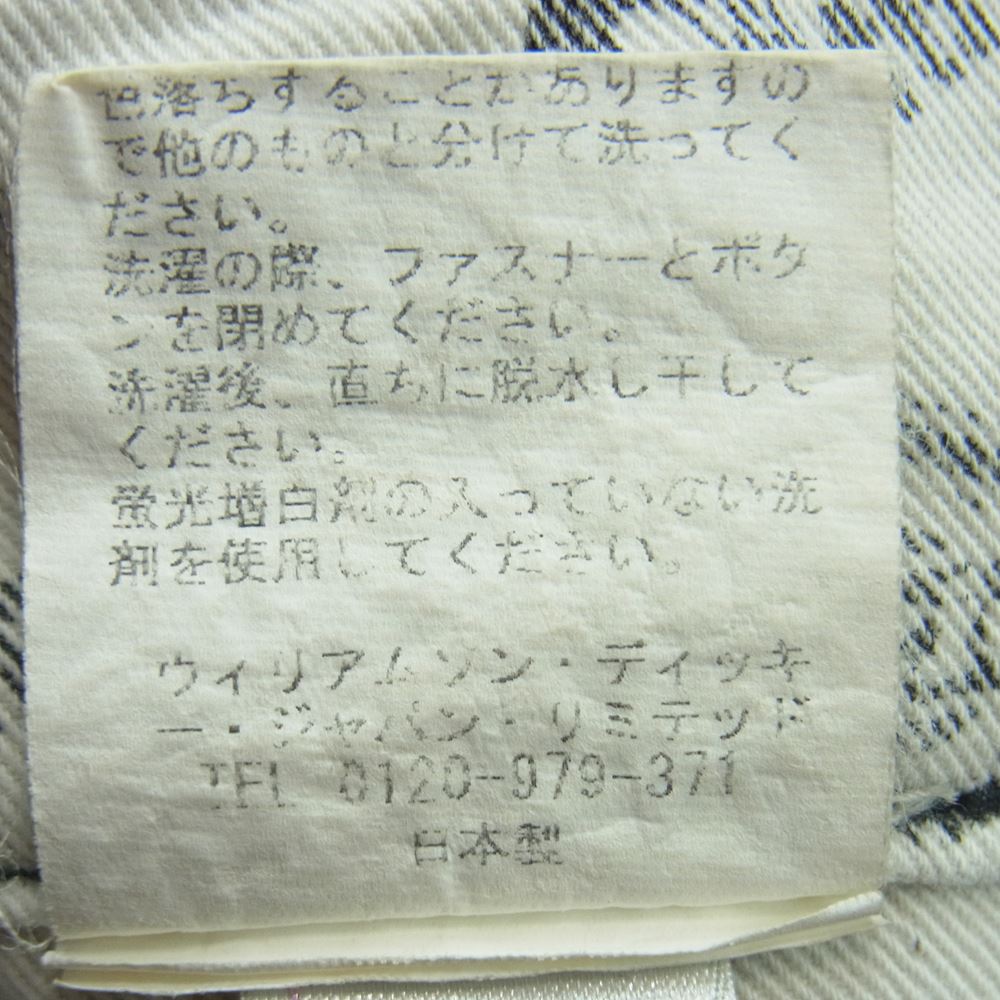 色落ちすることがありますの
で他のものと分けて洗ってく
ださい。
洗濯の際、ファスナーとボタ
ンを閉めてください。
洗濯後、直ちに脱水し干して
ください。
蛍光増白剤の入っていない洗
剤を使用してください。
ウィリアムソン・ディッキ
ー・ジャパン・リミテッド
TEL 0120-979-371
日本製